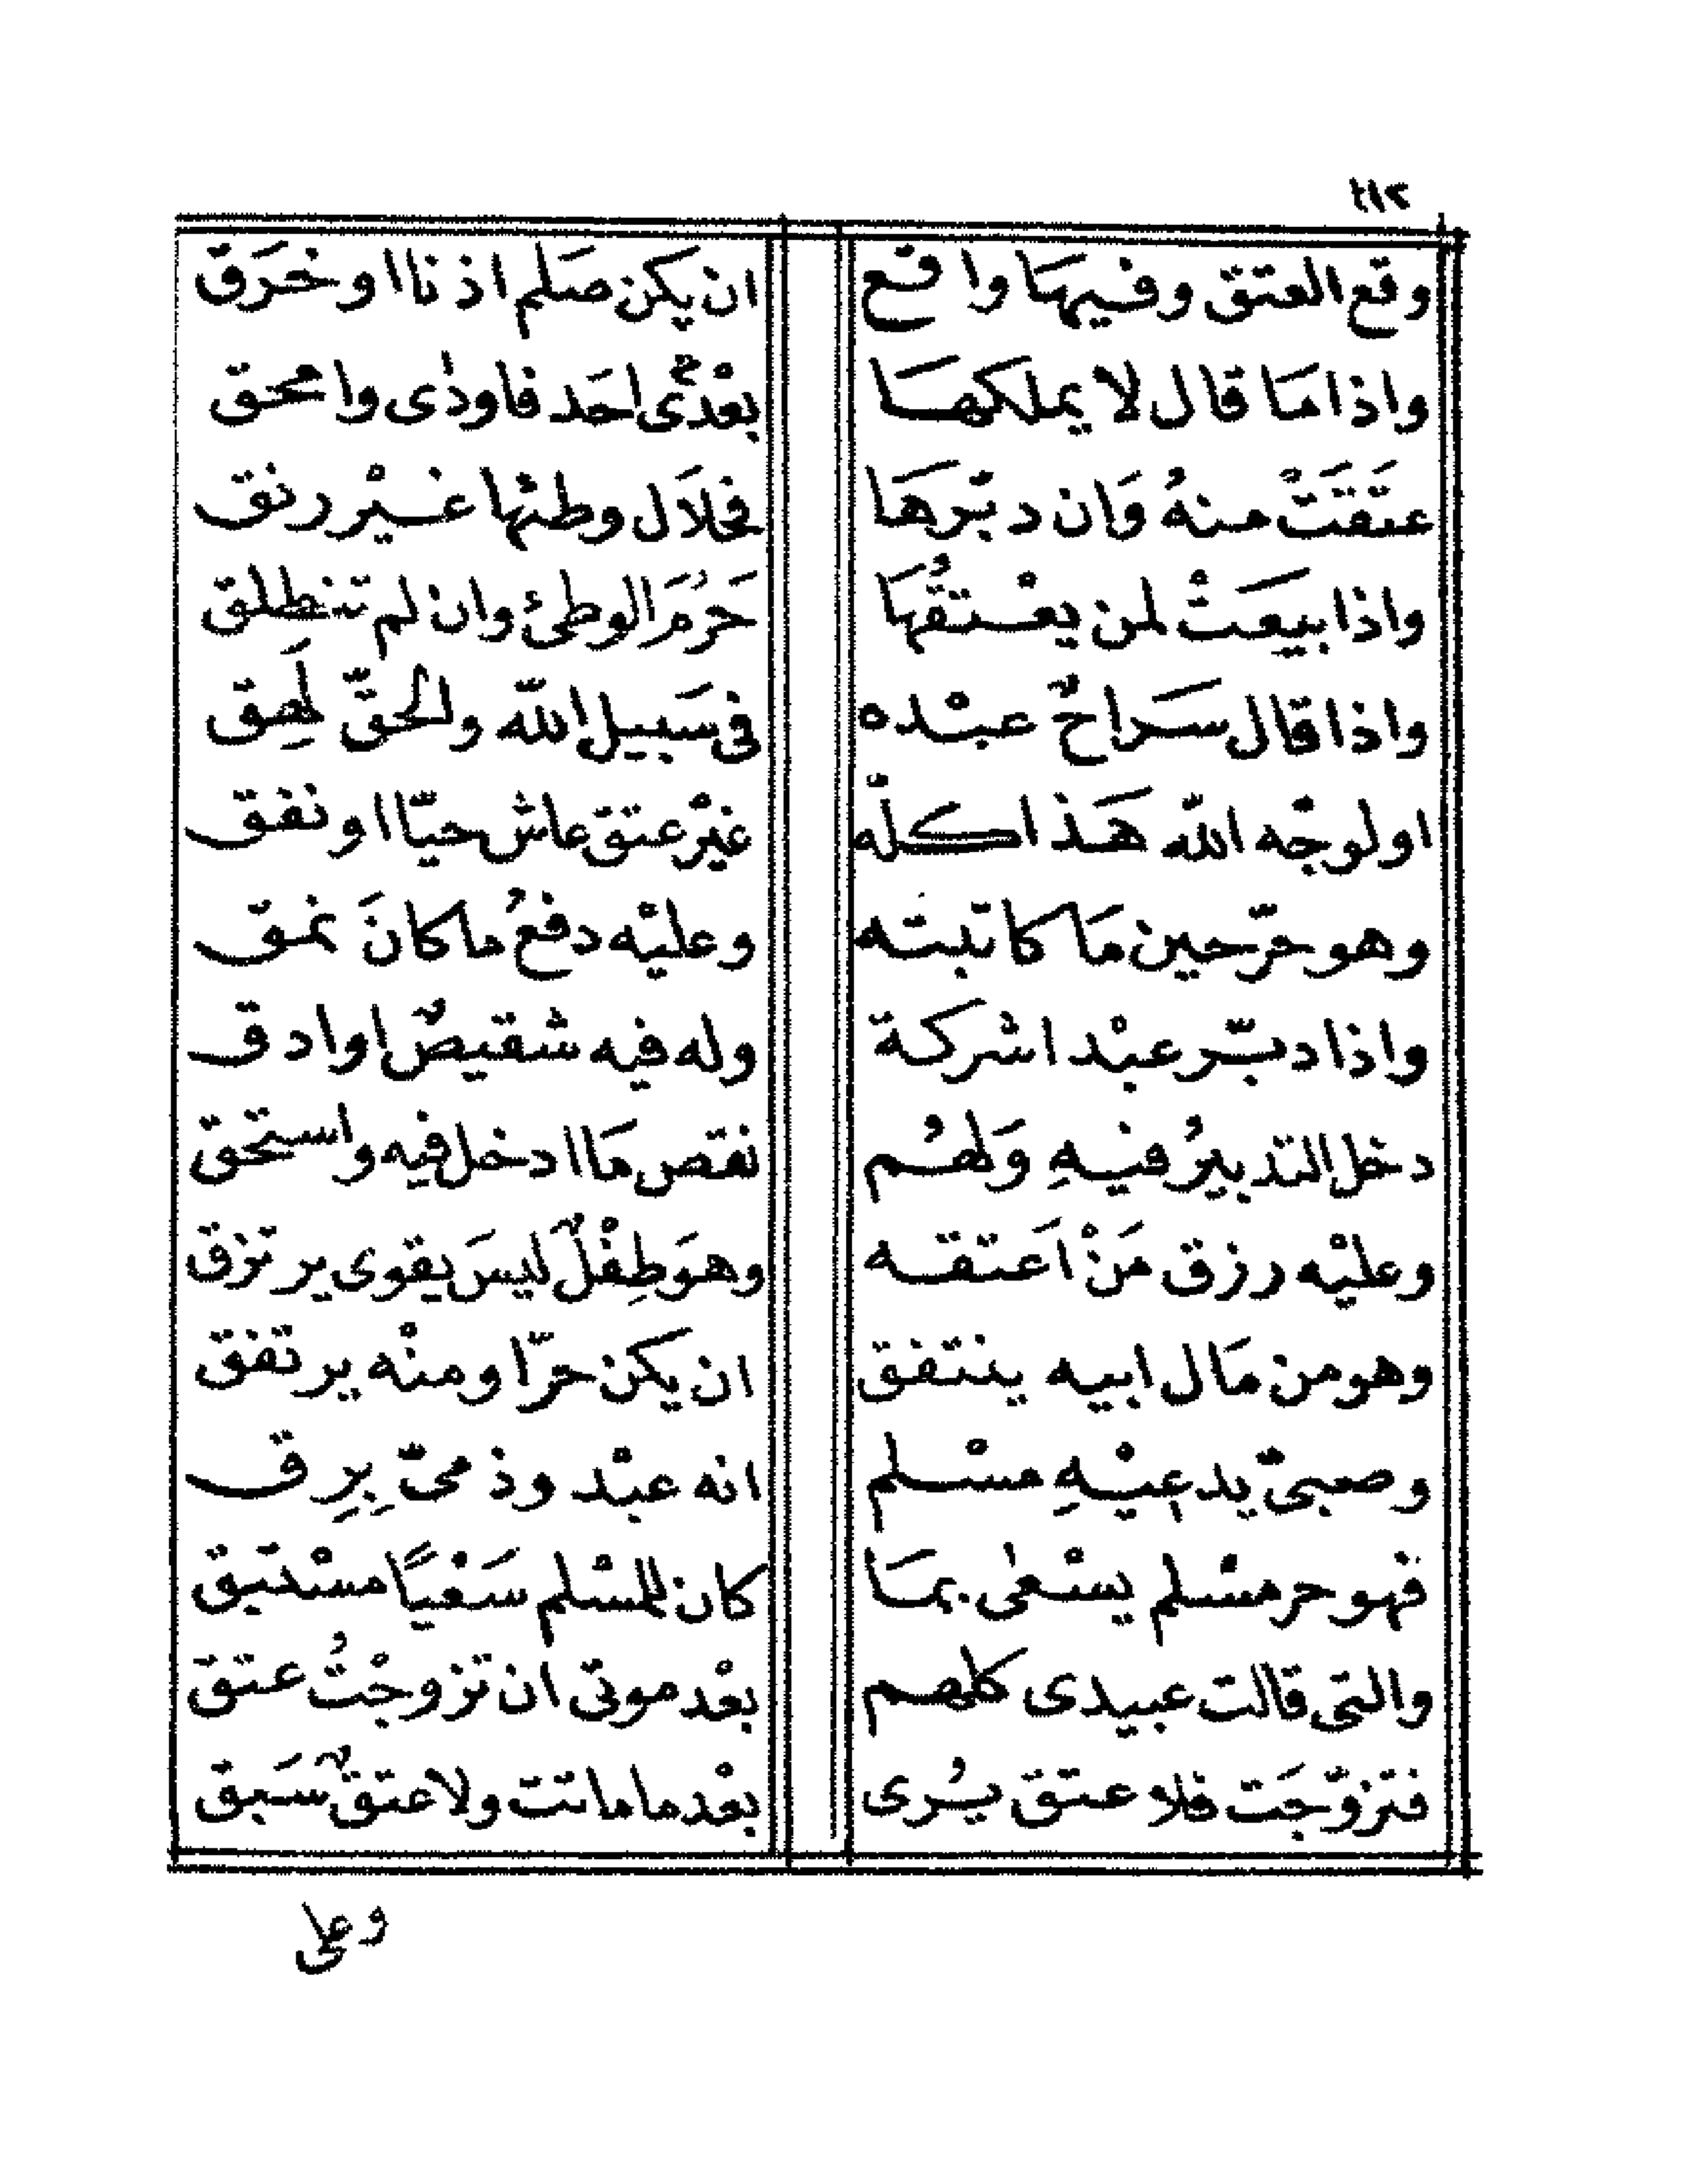 وقع العتق وفيها واقع ان يكن صلم اذنا او خرق
واذا مَا قال لا يملكهَا بعْدىْ احَد فاوذى وامحق
عتَقَتْ منهُ وَان دبّرهَا فحلاَل وطئها غيْر رنق
واذا بيعَتْ لمن يعْتقُهَا حَرُمَ الوطئ وان لم تنطلق
واذا قال سَراحٌ عبْده فى سَبيل اللّه والحقّ لَصِق
او لوجْه اللّه هَذا كلّه غيْر عتق عاش حيّا او نفق
وهو حرّ حين مَا كاتبته وعليْه دفعُ ما كانَ نمق
واذا دبّر عبْدا شركة وله فيه شقيصٌ او ادق
دخل التدبيرُ فيهِ وَلهُم نقص مَا ادخل فيه واستحق
وعليْه رزق مَنْ اَعتقه وهوَ طِفْلٌ ليسَ يقوى يرتزق
وهو من مَال ابيه ينتفق ان يكن حرّا ومنْه يرتفق
وصبىّ يدعيْهِ مسْلم انه عبْد وذمىّ بِرِق
فهو حر مسْلم يسْعٰى بمَا كان للمسْلم سَعْيًا مسْتبق
والتى قالت عبيدى كلهم بعْد موتى ان تزوجْتُ عتق
فتزوّجَت فلا عتق يُرى بعْد ما ماتت ولا عتقٌ سَبق
وعلى